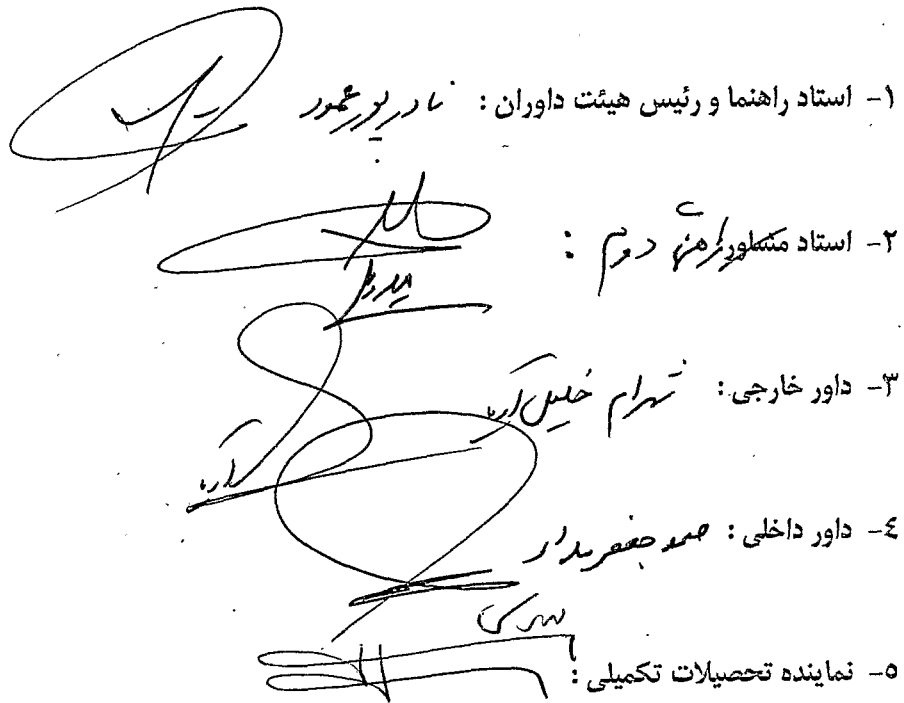 ۱- استاد راهنما و رئیس هیئت داوران: نادر پورمحمود
۲- استاد مشاور راهنمای دوم:
۳- داور خارجی: شهرام خلیل آریا
٤- داور داخلی: صمد جعفرمدار
۵- نماینده تحصیلات تکمیلی: